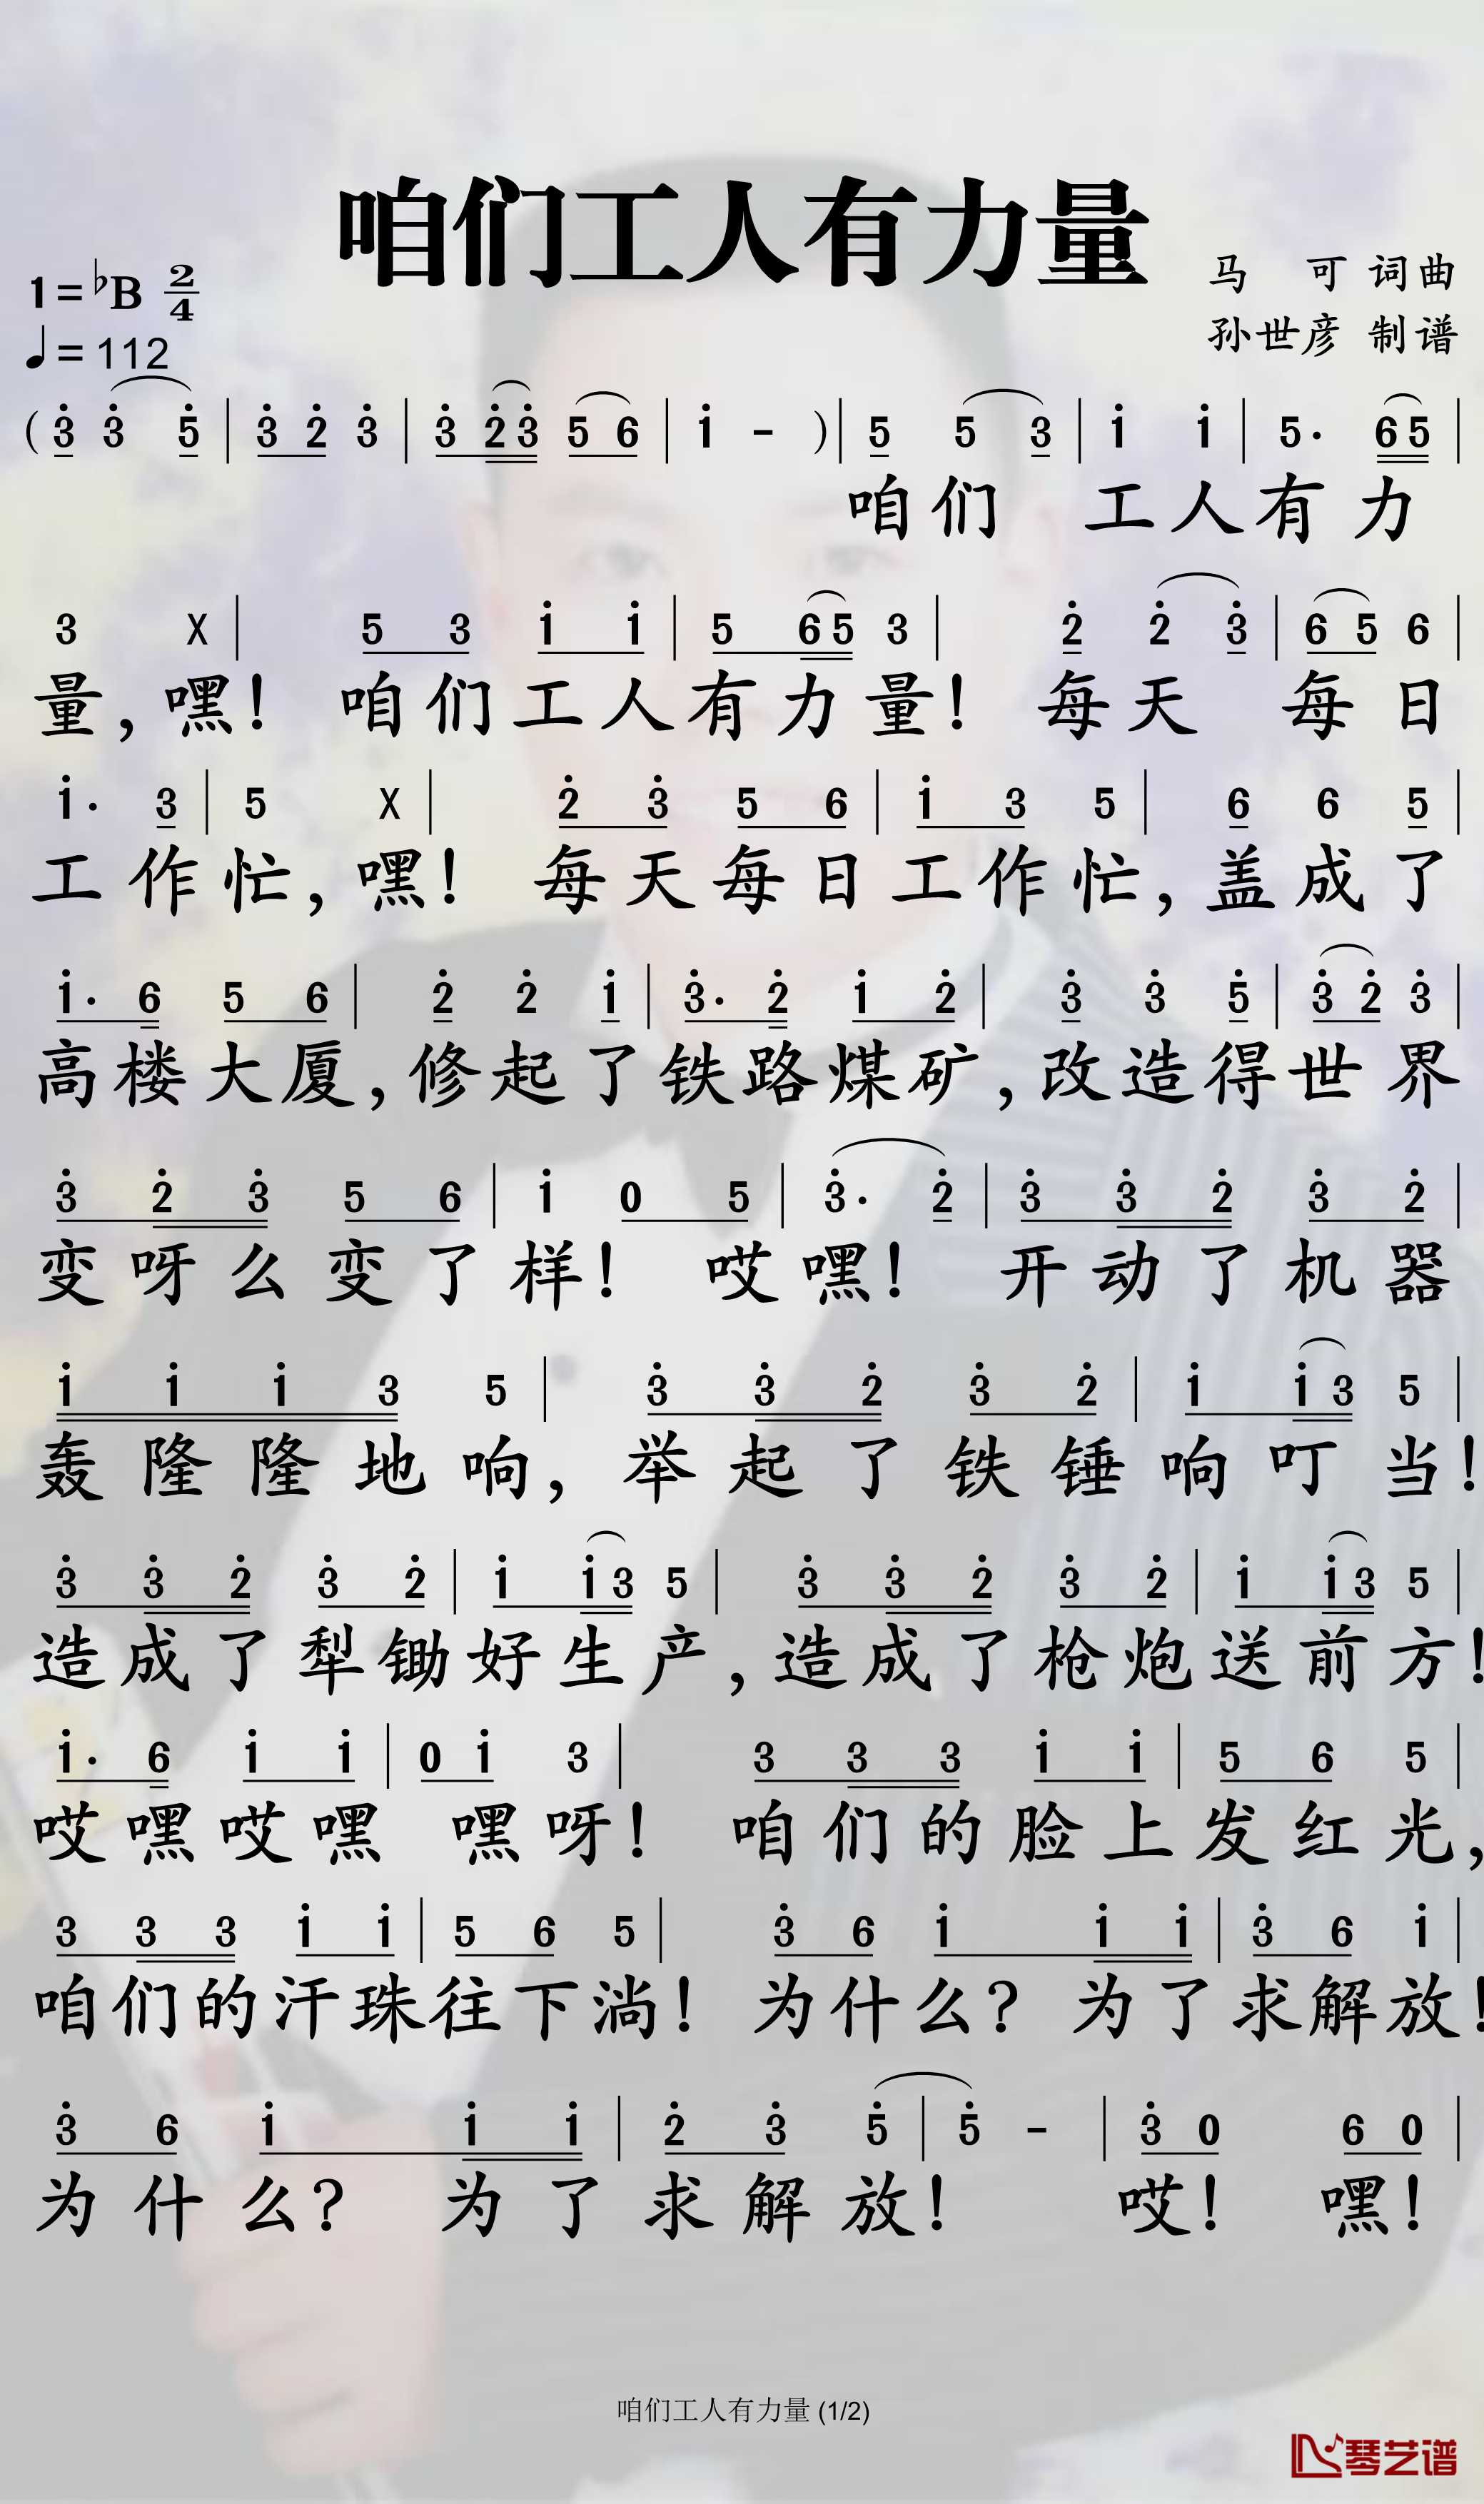 咱们工人有力量
1=♭B 2/4
马 可 词曲
♩=112
孙世彦 制谱
( 3̇ 3̇ 5̇ | 3̇ 2̇ 3̇ | 3̇ 2̇ 3̇ 5 6 | 1̇ - ) | 5 5 3 | 1̇ 1̇ | 5. 6 5 |
咱们 工人有力
3 X | 5 3 1̇ 1̇ | 5 6 5 3 | 2̇ 2̇ 3̇ | 6 5 6 |
量,嘿! 咱们工人有力量! 每天 每日
1̇. 3 | 5 X | 2̇ 3̇ 5 6 | 1̇ 3 5 | 6 6 5 |
工作忙,嘿! 每天每日工作忙,盖成了
1̇. 6 5 6 | 2̇ 2̇ 1̇ | 3̇. 2̇ 1̇ 2̇ | 3̇ 3̇ 5̇ | 3̇ 2̇ 3̇ |
高楼大厦,修起了铁路煤矿,改造得世界
3̇ 2̇ 3̇ 5 6 | 1̇ 0 5 | 3̇. 2̇ | 3̇ 3̇ 2̇ 3̇ 2̇ |
变呀么变了样! 哎嘿! 开动了机器
1̇ 1̇ 1̇ 3 5 | 3̇ 3̇ 2̇ 3̇ 2̇ | 1̇ 1̇ 3 5 |
轰隆隆地响,举起了铁锤响叮当!
3̇ 3̇ 2̇ 3̇ 2̇ | 1̇ 1̇ 3 5 | 3̇ 3̇ 2̇ 3̇ 2̇ | 1̇ 1̇ 3 5 |
造成了犁锄好生产,造成了枪炮送前方!
1̇. 6 1̇ 1̇ | 0 1̇ 3 | 3 3 3 1̇ 1̇ | 5 6 5 |
哎嘿哎嘿 嘿呀! 咱们的脸上发红光,
3 3 3 1̇ 1̇ | 5 6 5 | 3̇ 6 1̇ 1̇ 1̇ | 3̇ 6 1̇ |
咱们的汗珠往下淌! 为什么? 为了求解放!
3̇ 6 1̇ 1̇ 1̇ | 2̇ 3̇ 5̇ | 5̇ - | 3̇ 0 6 0 |
为什么? 为了求解放! 哎! 嘿!
咱们工人有力量 (1/2)
琴艺谱